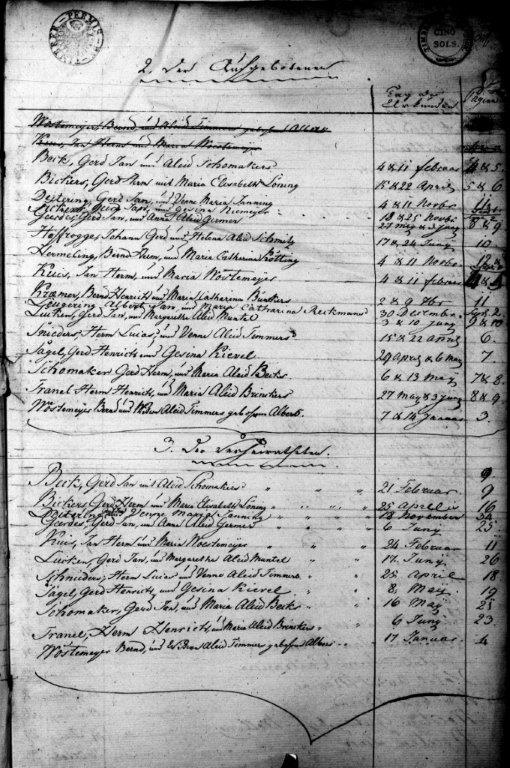 CINQ
SOLS.
2. der Aufgebotenen
Tag der
Urkunden
Pagina
Wöstemeyer, Bernd, und Aleid Timmers geboh Albers
Kuis, Jan Herm und Maria Wöstemeyer
Beck, Gerd Jan und Aleid Schomakers 4 & 11 februar 4 & 5
Bickers, Gerd Herm und Maria Elisabeth Söning 15 & 22 April 5 & 6
Deitering, Gerd Jan, und Venne Maria Sanning 4 & 11 Novbr
Gerd Jan, und Gesina Niemeyer 18 & 25 Novbr
Geerdes, Gerd Jan, und Anna Aleid Germer 27 may & 3 Juny 8 & 9
Hoffrogge, Johann Gerd und Helena Aleid Schmitz 17 & 24 Juny 10
Hermeling, Bernd Herm, und Maria Catharina Kötting 4 & 11 Novbr
Kuis, Jan Herm, und Maria Wöstemeyer 4 & 11 februar
Kramer, Bernd Henrich und Maria Catharina Bunkers 2 & 9 11
Albert Jan, und Maria Catharina Reckmans 30 December
Lucken, Gerd Jan, und Margaretha Aleid Mantel 3 & 10 Juny 9 & 10
Snieders, Herm Lucas, und Venne Aleid Timmers 15 & 22 April 6.
Sagel, Gerd Henrich und Gesina Kievel 29 April & 6 May 7.
Schomaker Gerd Herm, und Maria Aleid Becks. 6 & 13 May 7 & 8
Tranel Herm Henrich, und Maria Aleid Brinkers 27 May & 3 Juny 8 & 9
Wöstemeyer Bernd und Aleid Timmers gebohren Albers. 7 & 14 Januar 3.
3. Die Verheiratheten.
Beck, Gerd Jan und Aleid Schomakers 21 Februar 9
Bickers, Gerd Herm und Maria Elisabeth Söning 25 April 16
Deitering, und Venne Maria Sanning November
Geerdes, Gerd Jan, und Anna Aleid Germer 6 Juny 25
Kuis, Jan Herm und Maria Wöstemeyer 24 Februar 11
Lucken, Gerd Jan, und Margaretha Aleid Mantel 17 Juny. 26
Schnieders, Herm Lucas und Venne Aleid Timmers 25 April 18
Sagel, Gerd Henrich, und Gesina Kievel 8 May 19
Schomaker, Gerd Jan, und Maria Aleid Becks 16 May 21
Tranel, Herm Henrich und Maria Aleid Brinkers 6 Juny 23
Wöstemeyer Bernd, und Aleid Timmers gebohren Albers 17 Januar 4